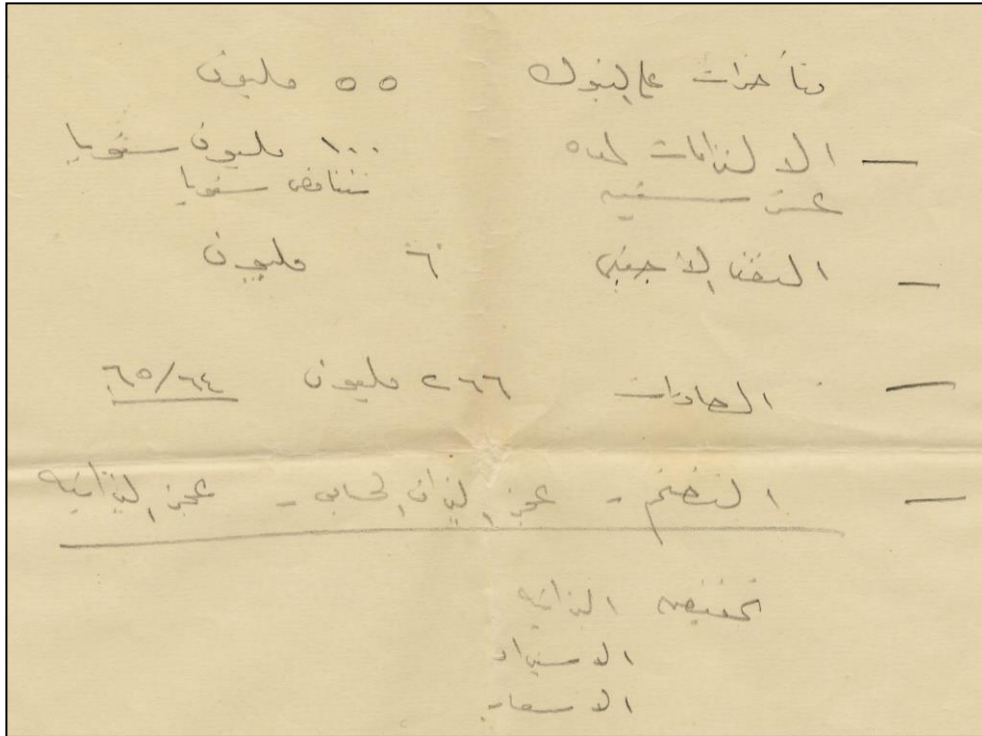 متأخرات على البنوك ٥٥ مليون
— الالتزامات لمدة ١٠٠ مليون سنويا
عشر سنين تتناقص سنويا
— النقد الأجنبى ٦ مليون
— الصادرات ٢٦٦ مليون ٦٥/٦٤
— التضخم - عجز الميزان الحسابى - عجز الميزانية
تخفيض الميزانية
الاستيراد
الاسعار